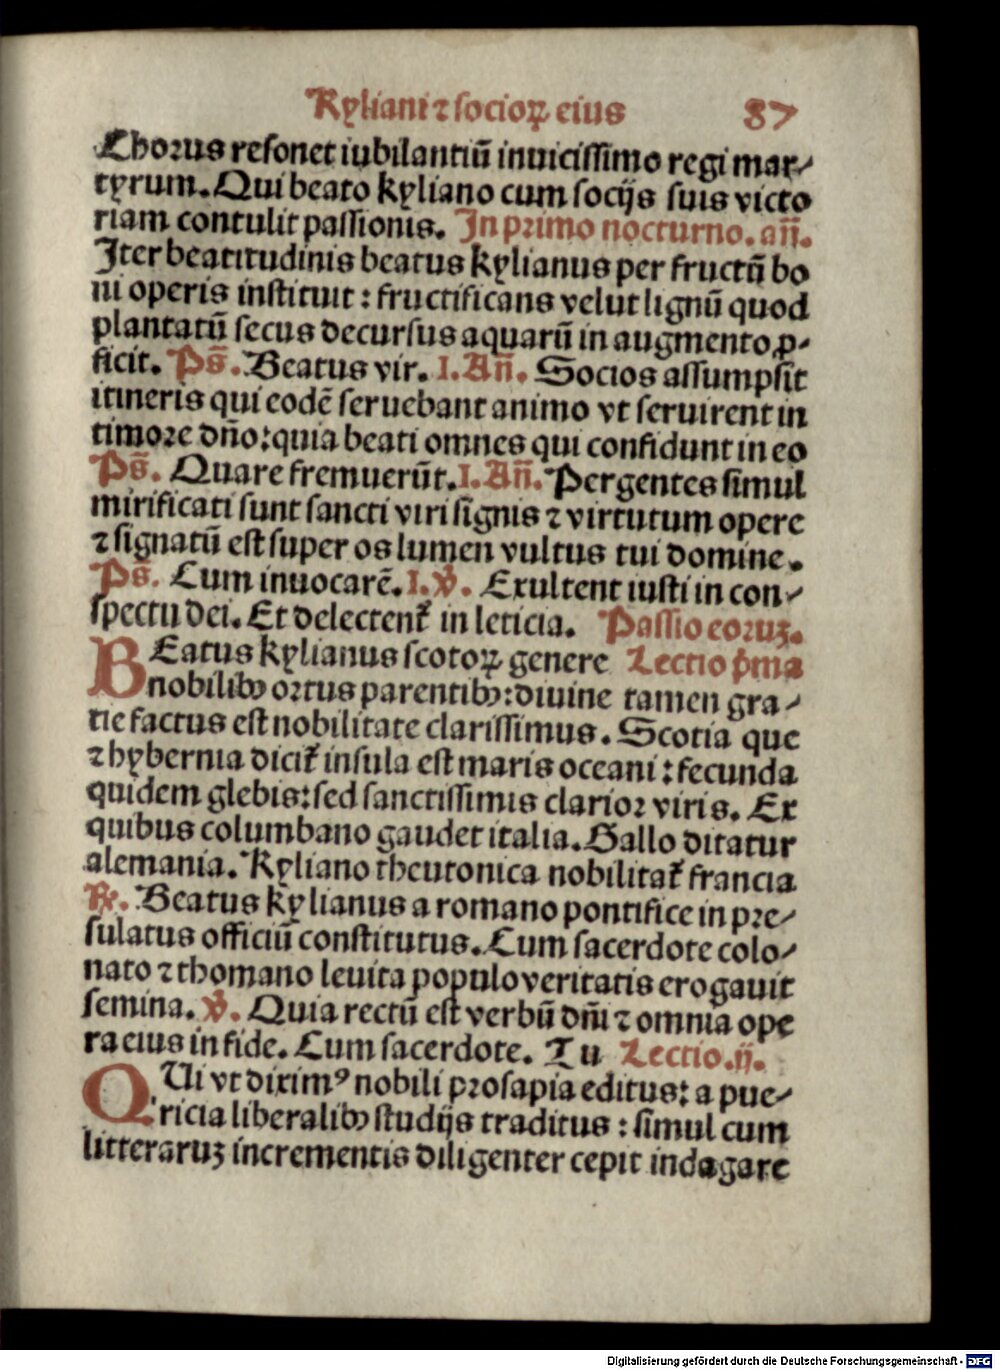 Kyliani ⁊ socioꝝ eius 87
Chorus resonet iubilantiū inuictissimo regi mar⸗
tyrum. Qui beato kyliano cum socijs suis victo
riam contulit passionis. In primo nocturno. añ.
Iter beatitudinis beatus kylianus per fructū bo
ni operis instituit : fructificans velut lignū quod
plantatū secus decursus aquarū in augmento ꝓ⸗
ficit. Ps̄. Beatus vir. I. Añ. Socios assumpsit
itineris qui eodē seruebant animo vt seruirent in
timore dño: quia beati omnes qui confidunt in eo
Ps̄. Quare fremuerūt. I. Añ. Pergentes simul
mirificati sunt sancti viri signis ⁊ virtutum opere
⁊ signatū est super os lumen vultus tui domine.
Ps̄. Cum inuocarē. I. ℣. Exultent iusti in con⸗
spectu dei. Et delectent᷑ in leticia. Passio eoruꝫ.
BEatus kylianus scotoꝝ genere Lectio p̄ma
nobilibꝰ ortus parentibꝰ: diuine tamen gra⸗
tie factus est nobilitate clarissimus. Scotia que
⁊ hybernia dicit᷑ insula est maris oceani : fecunda
quidem glebis: sed sanctissimis clarior viris. Ex
quibus columbano gaudet italia. Gallo ditatur
alemania. Kyliano theutonica nobilitat᷑ francia
℟. Beatus kylianus a romano pontifice in pre⸗
sulatus officiū constitutus. Cum sacerdote colo⸗
nato ⁊ thomano leuita populo veritatis erogauit
semina. ℣. Quia rectū est verbū dñi ⁊ omnia ope
ra eius in fide. Cum sacerdote. Tu Lectio. ij.
QUi vt dixim⁹ nobili prosapia editus: a pue⸗
ricia liberalibꝰ studijs traditus : simul cum
litteraruꝫ incrementis diligenter cepit indagare
Digitalisierung gefördert durch die Deutsche Forschungsgemeinschaft - DFG